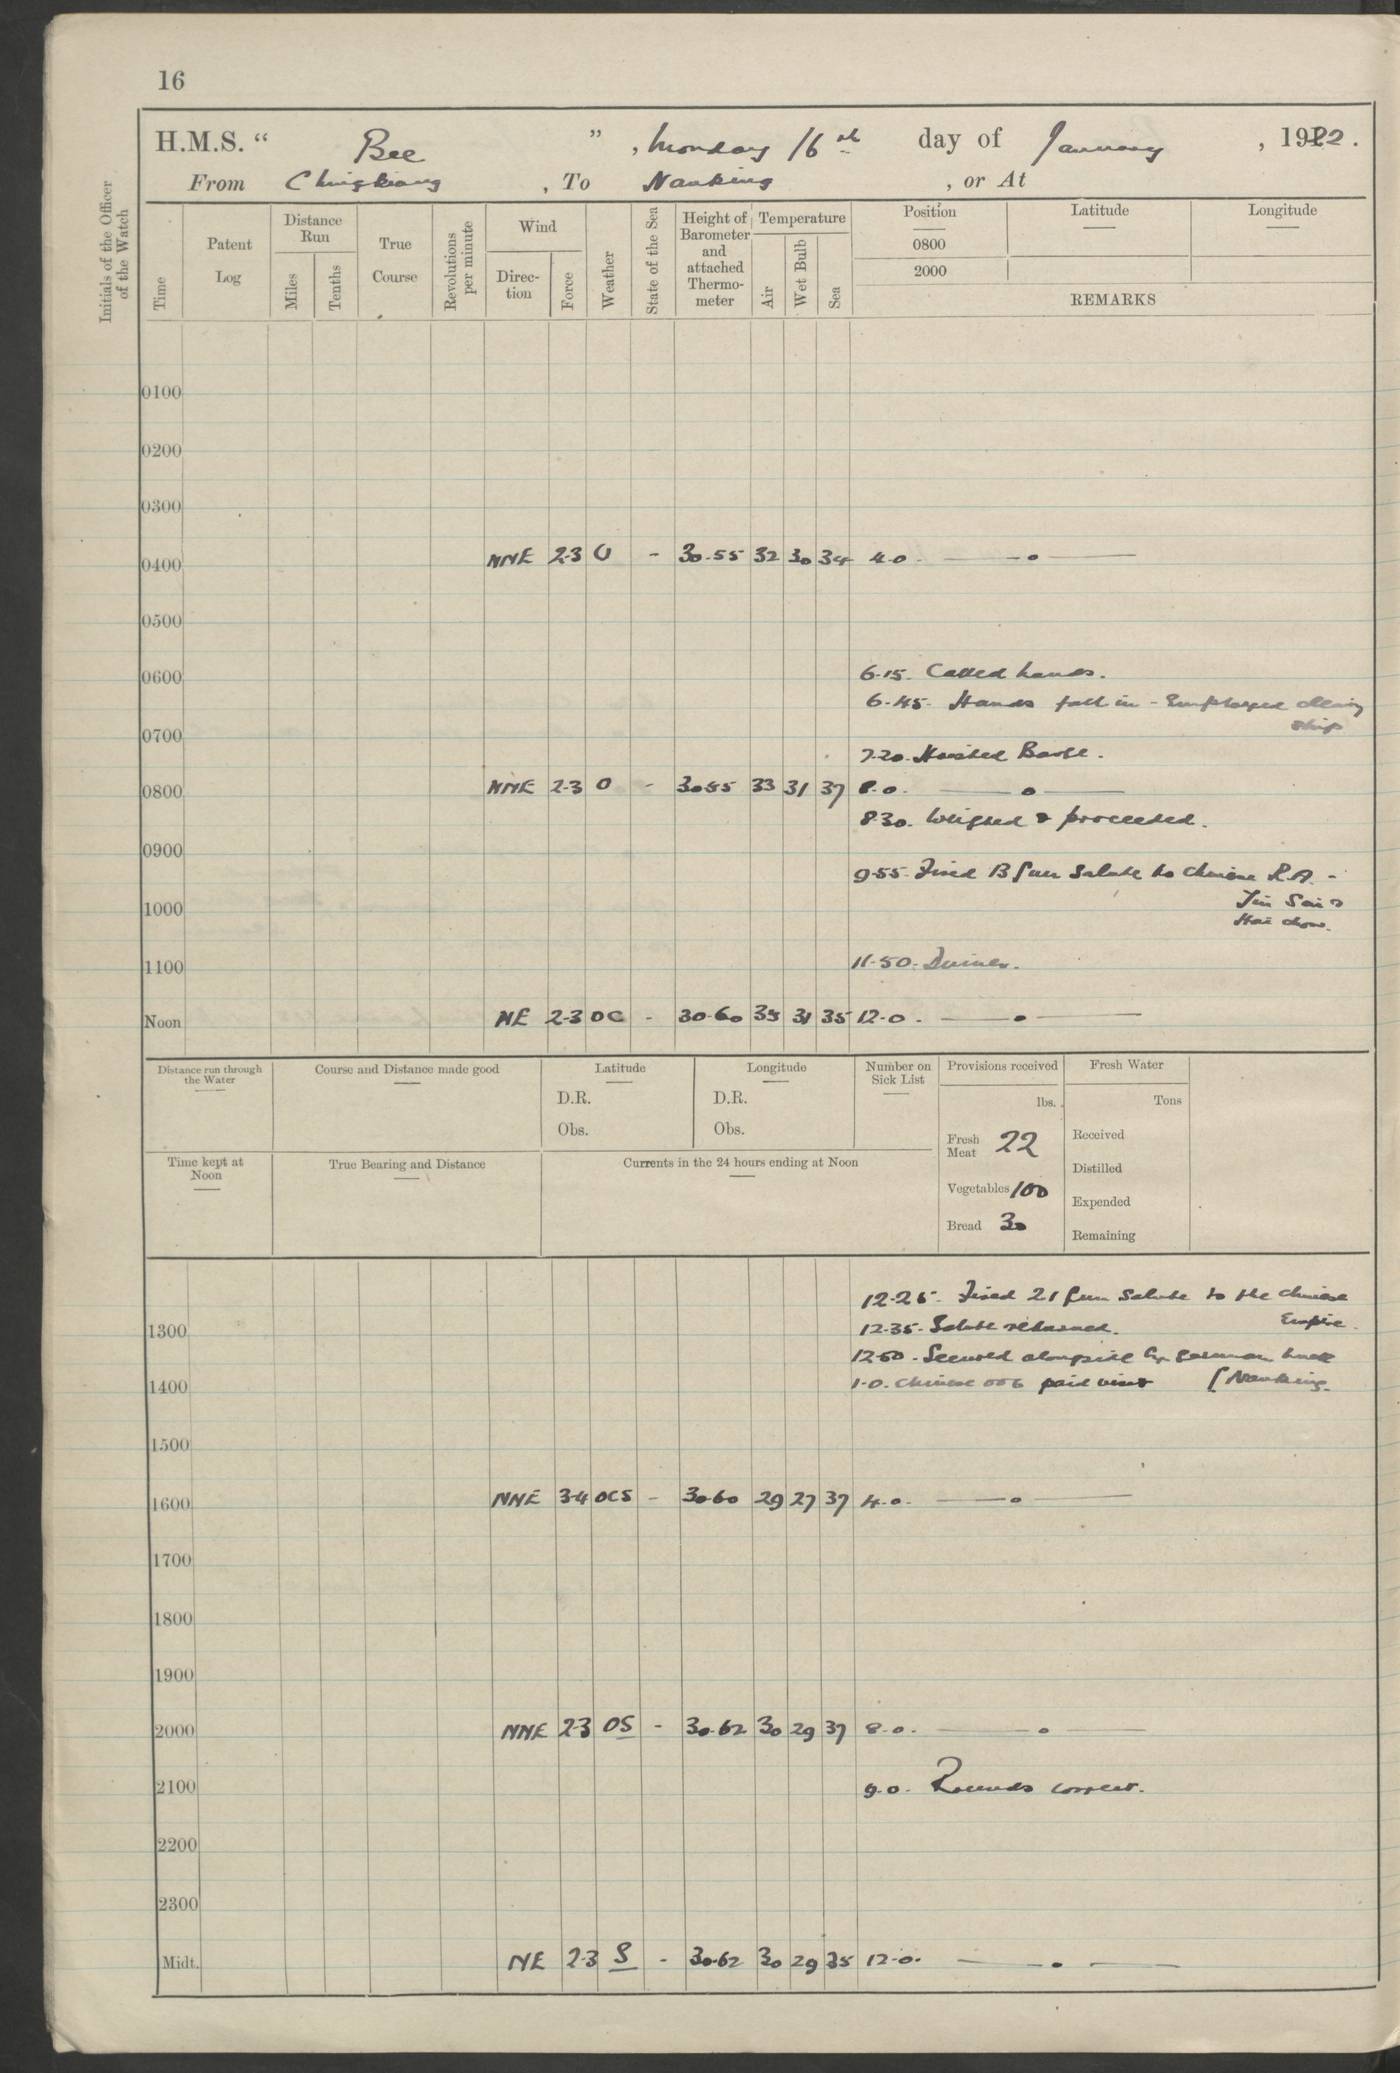 16
H.M.S. “ Bee ” , Monday 16th day of January , 1922.
From Chingkiang , To Nanking , or At
Initials of the Officer of the Watch
Time
Patent Log
Distance Run
Miles
Tenths
True Course
Revolutions per minute
Wind
Direc-tion
Force
Weather
State of the Sea
Height of Barometer and attached Thermo-meter
Temperature
Air
Wet Bulb
Sea
Position
0800
2000
Latitude
Longitude
REMARKS
0100
0200
0300
0400 NNE 2-3 O - 30.55 32 30 34 4.0.
0500
0600 6.15. Called hands.
6.45. Hands fall in - Employed
ship
0700
7.20. Hoisted Boat.
0800 NNE 2-3 O - 30.55 33 31 37 8.0.
8.30. Weighed & proceeded.
0900
9.55. Fired 13 gun Salute to Chinese R.A. -
1000
11.50. Dinner.
1100
Noon NE 2-3 OC - 30.60 35 31 35 12.0.
Distance run through the Water
Course and Distance made good
Latitude
D.R.
Obs.
Longitude
D.R.
Obs.
Number on Sick List
Provisions received
lbs.
Fresh Meat 22
Vegetables 100
Bread 30
Fresh Water
Tons
Received
Distilled
Expended
Remaining
Time kept at Noon
True Bearing and Distance
Currents in the 24 hours ending at Noon
12.25. Fired 21 gun Salute to the Chinese
Empire.
1300 12.35. Salute returned.
12.50. Secured alongside German hulk
1400 1.0. Chinese paid visit [Nanking.
1500
1600 NNE 3-4 OCS - 30.60 29 27 37 4.0.
1700
1800
1900
2000 NNE 2-3 OS - 30.62 30 29 37 8.0.
2100 9.0. Rounds correct.
2200
2300
Midt. NE 2-3 S - 30.62 30 29 35 12.0.